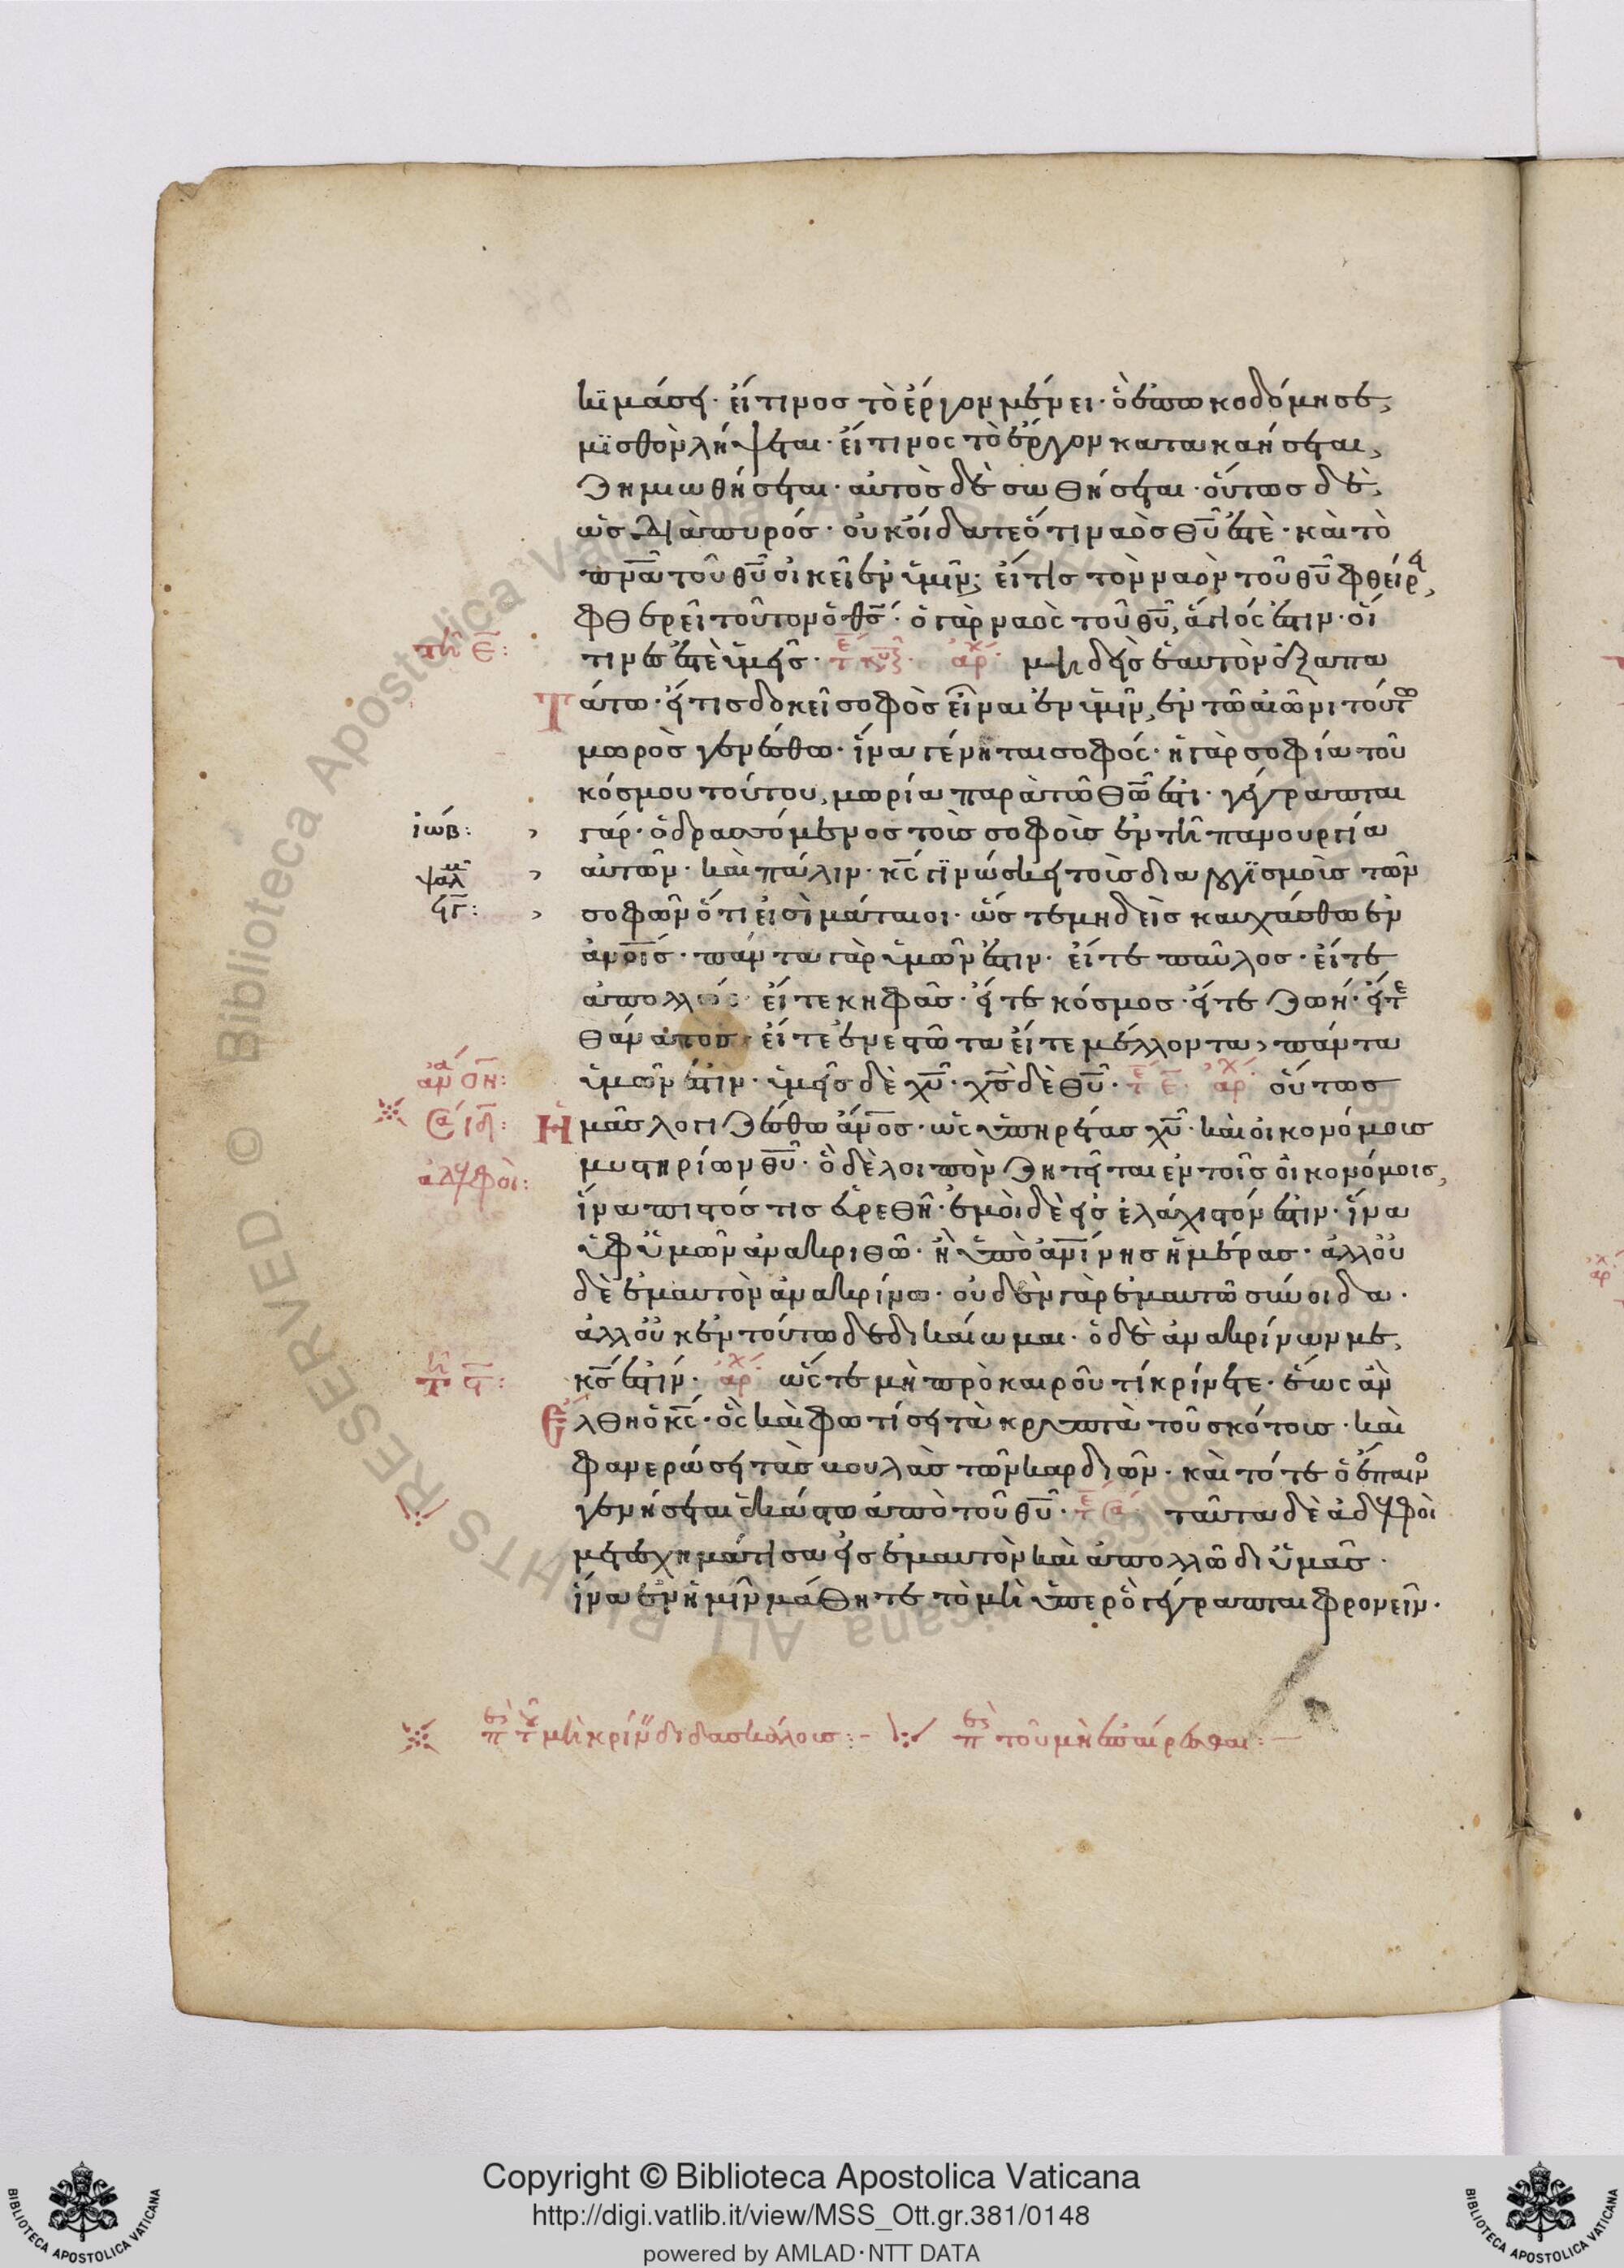 κιμάσει· εἴ τινος τὸ ἔργον μένει· ὃ ἐπωκοδόμησε,
μϊσθὸν λήψεται· εἴ τινος τὸ ἔργον κατακαήσεται,
ζημιωθήσεται· αὐτὸς δὲ σωθήσεται· οὕτως δὲ,
ὡς διὰ πυρός· οὐκ οἴδατε ὅτι ναὸς θ̅υ̅ ἐστὲ· καὶ τὸ
π̅ν̅α̅ τοῦ θ̅υ̅ οἰκεῖ ἐν ὑμῖν; εἴ τις τὸν ναὸν τοῦ θ̅υ̅ φθείρει,
φθερεῖ τοῦτον ὁ θ̅ς̅· ὁ γὰρ ναὸς τοῦ θ̅υ̅, ἅγιός ἐστιν· οἵ
τῆ ε̅:
τινες ἐστὲ ὑμεῖς· ἀρχ μηδεὶς ἑαυτὸν ἐξαπα
Τάτω· εἴ τις δοκεῖ σοφὸς εἶναι ἐν ὑμῖν, ἐν τῶ αἰῶνι τούτω
μωρὸς γενέσθω· ἵνα γένηται σοφός· ἡ γὰρ σοφία τοῦ
κόσμου τούτου, μωρία παρὰ τῶ θ̅ω̅ ἐστι· γέγραπται
ἰώβ: γάρ· ὁ δρασσόμενος τοὺς σοφοὺς ἐν τῆ πανουργία
ψαλμ αὐτῶν· καὶ πάλιν· κ̅ς̅ γϊνώσκει τοὺς διαλογϊσμοὺς τῶν
σοφῶν ὅτι εἰσὶ μάταιοι· ὥστε μηδεὶς καυχάσθω ἐν
α̅ν̅ο̅ι̅ς̅· πάντα γὰρ ὑμῶν ἐστιν· εἴτε παῦλος· εἴτε
ἀπολλώς· εἴτε κηφᾶς· εἴτε κόσμος· εἴτε ζωή· εἴτε
θάνατος· εἴτε ἐνεστῶτα εἴτε μέλλοντα, πάντα
ὑμῶν ἐστιν· ὑμεῖς δὲ χ̅υ̅· χ̅ς̅ δὲ θ̅υ̅· ἀρχ οὕτως
Ἡμᾶς λογιζέσθω α̅ν̅ο̅ς̅· ὡς ὑπηρέτας χ̅υ̅· καὶ οἰκονόμους
ἀδελφοὶ: μυστηρίων θ̅υ̅· ὃ δὲ λοιπὸν ζητεῖται ἐν τοῖς οἰκονόμοις,
ἵνα πιστός τις εὑρεθῆ· ἐμοὶ δὲ εἰς ἐλάχιστόν ἐστιν· ἵνα
ὑφ' ὑμῶν ἀνακριθῶ· ἢ ὑπὸ α̅ν̅ίνης ἡμέρας· ἀλλ' οὐ
δὲ ἐμαυτὸν ἀνακρίνω· οὐδὲν γὰρ ἐμαυτῶ σύνοιδα·
ἀλλ' οὐκ ἐν τούτω δεδικαίωμαι· ὁ δὲ ἀνακρίνων με,
κ̅ς̅ ἐστίν· ἀρχ ὥστε μὴ πρὸ καιροῦ τί κρίνετε· ἕως ἂν
Ἔλθη ὁ κ̅ς̅· ὃς καὶ φωτίσει τὰ κρυπτὰ τοῦ σκότους· καὶ
φανερώσει τὰς βουλὰς τῶν καρδιῶν· καὶ τότε ὁ ἔπαινος
γενήσεται ἑκάστω ἀπὸ τοῦ θ̅υ̅· ταῦτα δὲ ἀδελφοὶ
μετεσχημάτισα εἰς ἐμαυτὸν καὶ ἀπολλῶ δι' ὑμᾶς·
ἵνα ἐν ἡμῖν μάθητε τὸ μὴ ὑπὲρ ὃ γέγραπται φρονεῖν·
περὶ τοῦ μὴ κρίνειν διδασκάλους:– περὶ τοῦ μὴ ἐπαίρεσθαι:–
Copyright © Biblioteca Apostolica Vaticana
http://digi.vatlib.it/view/MSS_Ott.gr.381/0148
powered by AMLAD·NTT DATA
BIBLIOTECA APOSTOLICA VATICANA
BIBLIOTECA APOSTOLICA VATICANA